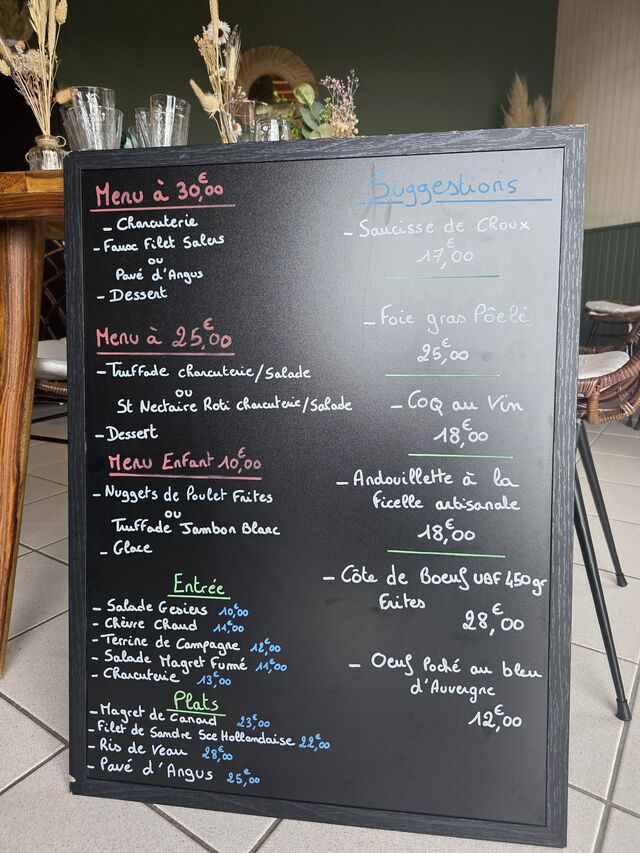 Menu à 30,00€
- Charcuterie
- Faux Filet Salers
ou
Pavé d'Angus
- Dessert
Menu à 25,00€
- Truffade charcuterie/Salade
ou
St Nectaire Roti charcuterie/Salade
- Dessert
Menu Enfant 10,00€
- Nuggets de Poulet Frites
ou
Truffade Jambon Blanc
- Glace
Entrée
- Salade Gesiers 10,00€
- Chèvre Chaud 11,00€
- Terrine de Campagne 12,00€
- Salade Magret Fumé 11,00€
- Charcuterie 13,00€
Plats
- Magret de Canard 23,00€
- Filet de Sandre Sce Hollandaise 22,00€
- Ris de Veau 28,00€
- Pavé d'Angus 25,00€
Suggestions
- Saucisse de Choux
17,00€
- Foie gras Pôelé
25,00€
- Coq au Vin
18,00€
- Andouillette à la
ficelle artisanale
18,00€
- Côte de Boeuf UBF 450gr
Frites
28,00€
- Oeuf Poché au bleu
d'Auvergne
12,00€